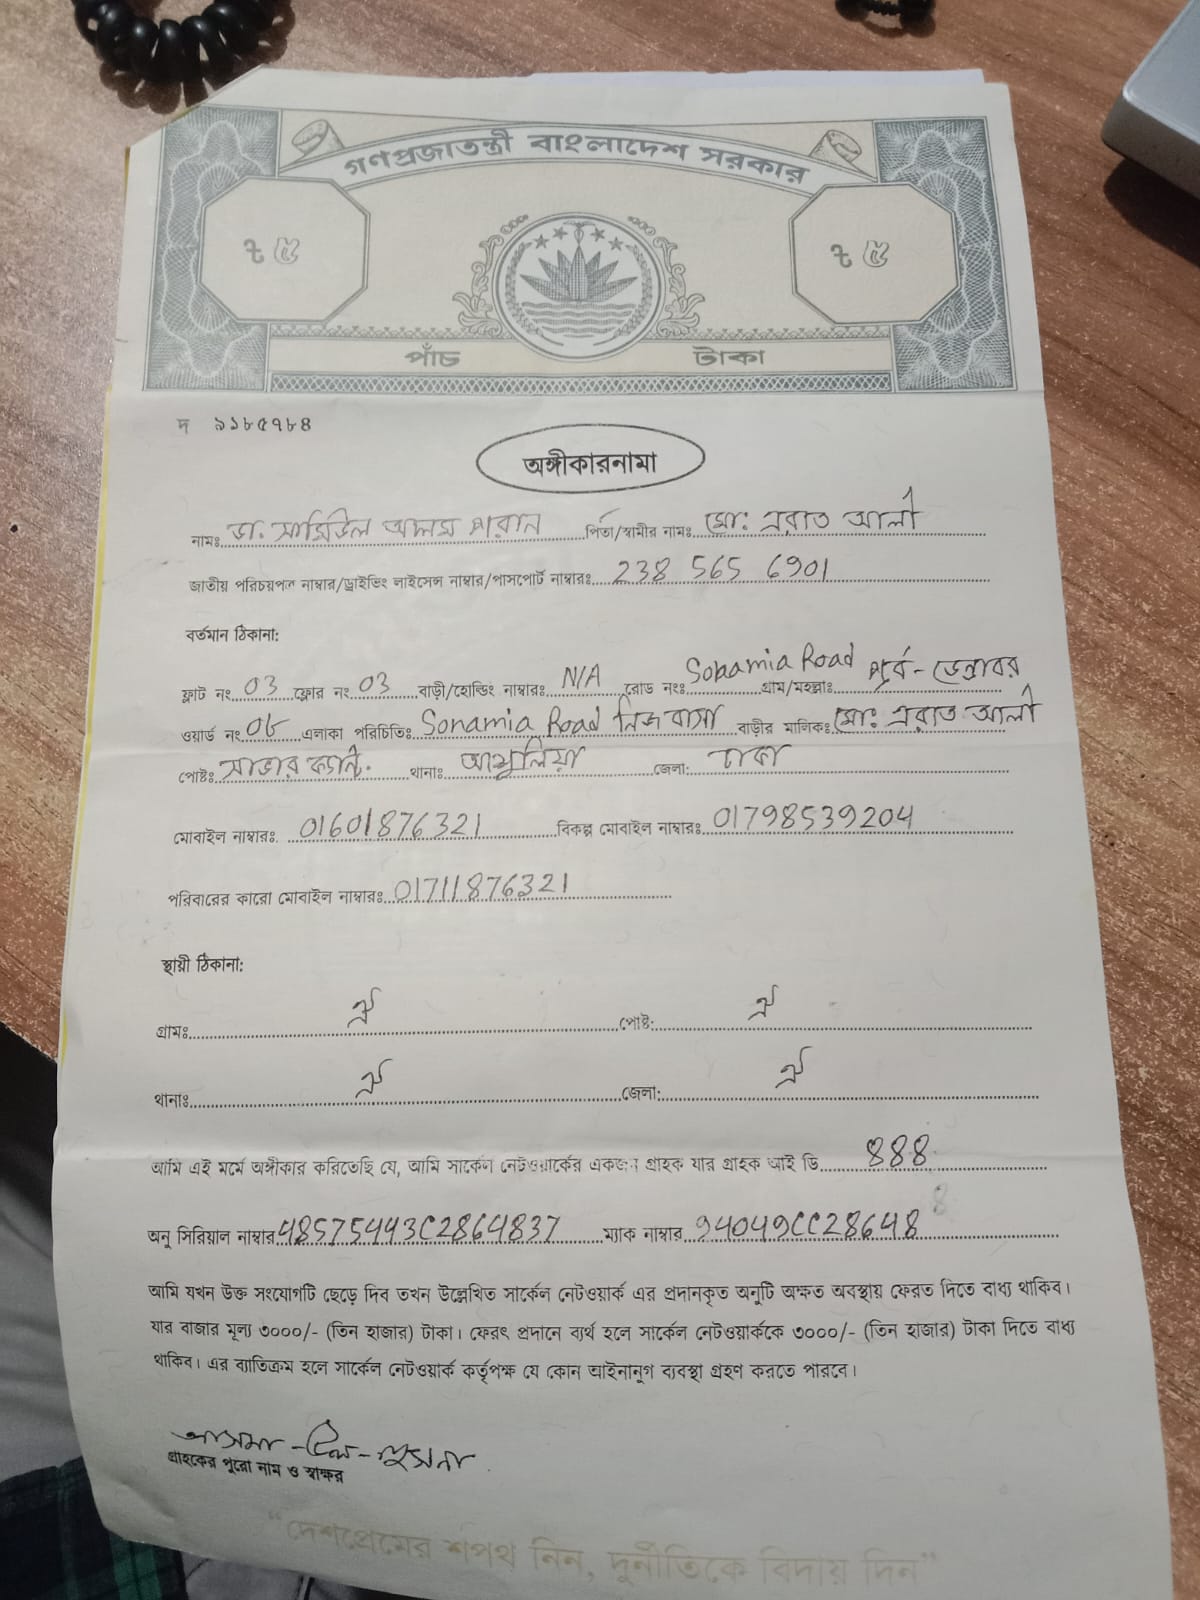 গণপ্রজাতন্ত্রী বাংলাদেশ সরকার
৳ ৫ ৳ ৫
পাঁচ টাকা
দ ৯১৮৫৭৮৪
অঙ্গীকারনামা
নামঃ ডা. সামিউল আলম পিতা/স্বামীর নামঃ মো: এরাত আলী
জাতীয় পরিচয়পত্র নাম্বার/ড্রাইভিং লাইসেন্স নাম্বার/পাসপোর্ট নাম্বারঃ 238 565 6901
বর্তমান ঠিকানা:
ফ্লাট নং 03 ফ্লোর নং 03 বাড়ী/হোল্ডিং নাম্বারঃ N/A রোড নংঃ Road গ্রাম/মহল্লাঃ পূর্ব-ডেন্ডাবর
ওয়ার্ড নং এলাকা পরিচিতিঃ Sonamia Road নিজ বাসা বাড়ীর মালিকঃ মো: এরাত আলী
পোষ্টঃ সাভার ক্যান্ট. থানাঃ আশুলিয়া জেলা: ঢাকা
মোবাইল নাম্বারঃ 01601876321 বিকল্প মোবাইল নাম্বারঃ 01798539204
পরিবারের কারো মোবাইল নাম্বারঃ 01711876321
স্থায়ী ঠিকানা:
গ্রামঃ ঐ পোষ্ট: ঐ
থানাঃ ঐ জেলা: ঐ
আমি এই মর্মে অঙ্গীকার করিতেছি যে, আমি সার্কেল নেটওয়ার্কের একজন গ্রাহক যার গ্রাহক আই ডি 888
অনু সিরিয়াল নাম্বার 48575443C2864837 ম্যাক নাম্বার 94049CC28648
আমি যখন উক্ত সংযোগটি ছেড়ে দিব তখন উল্লেখিত সার্কেল নেটওয়ার্ক এর প্রদানকৃত অনুটি অক্ষত অবস্থায় ফেরত দিতে বাধ্য থাকিব।
যার বাজার মূল্য ৩০০০/- (তিন হাজার) টাকা। ফেরৎ প্রদানে ব্যর্থ হলে সার্কেল নেটওয়ার্ককে ৩০০০/- (তিন হাজার) টাকা দিতে বাধ্য
থাকিব। এর ব্যাতিক্রম হলে সার্কেল নেটওয়ার্ক কর্তৃপক্ষ যে কোন আইনানুগ ব্যবস্থা গ্রহণ করতে পারবে।
আসমা-উল-হুসনা
গ্রাহকের পুরো নাম ও স্বাক্ষর
"দেশপ্রেমের শপথ নিন, দুর্নীতিকে বিদায় দিন"